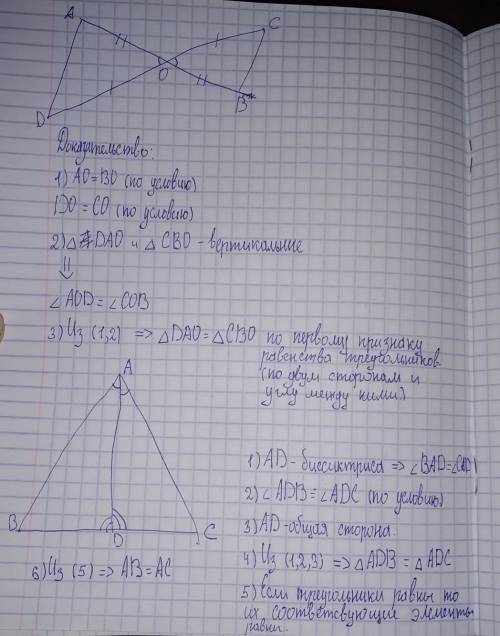 A
C
O
D
B
Доказательство:
1) AO=BO (по условию)
DO=CO (по условию)
2) △DAO и △CBO - вертикальные
⇓
∠AOD=∠COB
3) Из (1,2) => △DAO=△CBO по первому признаку
равенства треугольников
(по двум сторонам и
углу между ними)
A
B
D
C
1) AD-биссиктриса => ∠BAD=∠CAD
2) ∠ADB=∠ADC (по условию)
3) AD-общая сторона.
4) Из (1,2,3) => △ADB=△ADC
5) Если треугольники равны то
их соответсвующие элементы
равны.
6) Из (5) => AB=AC